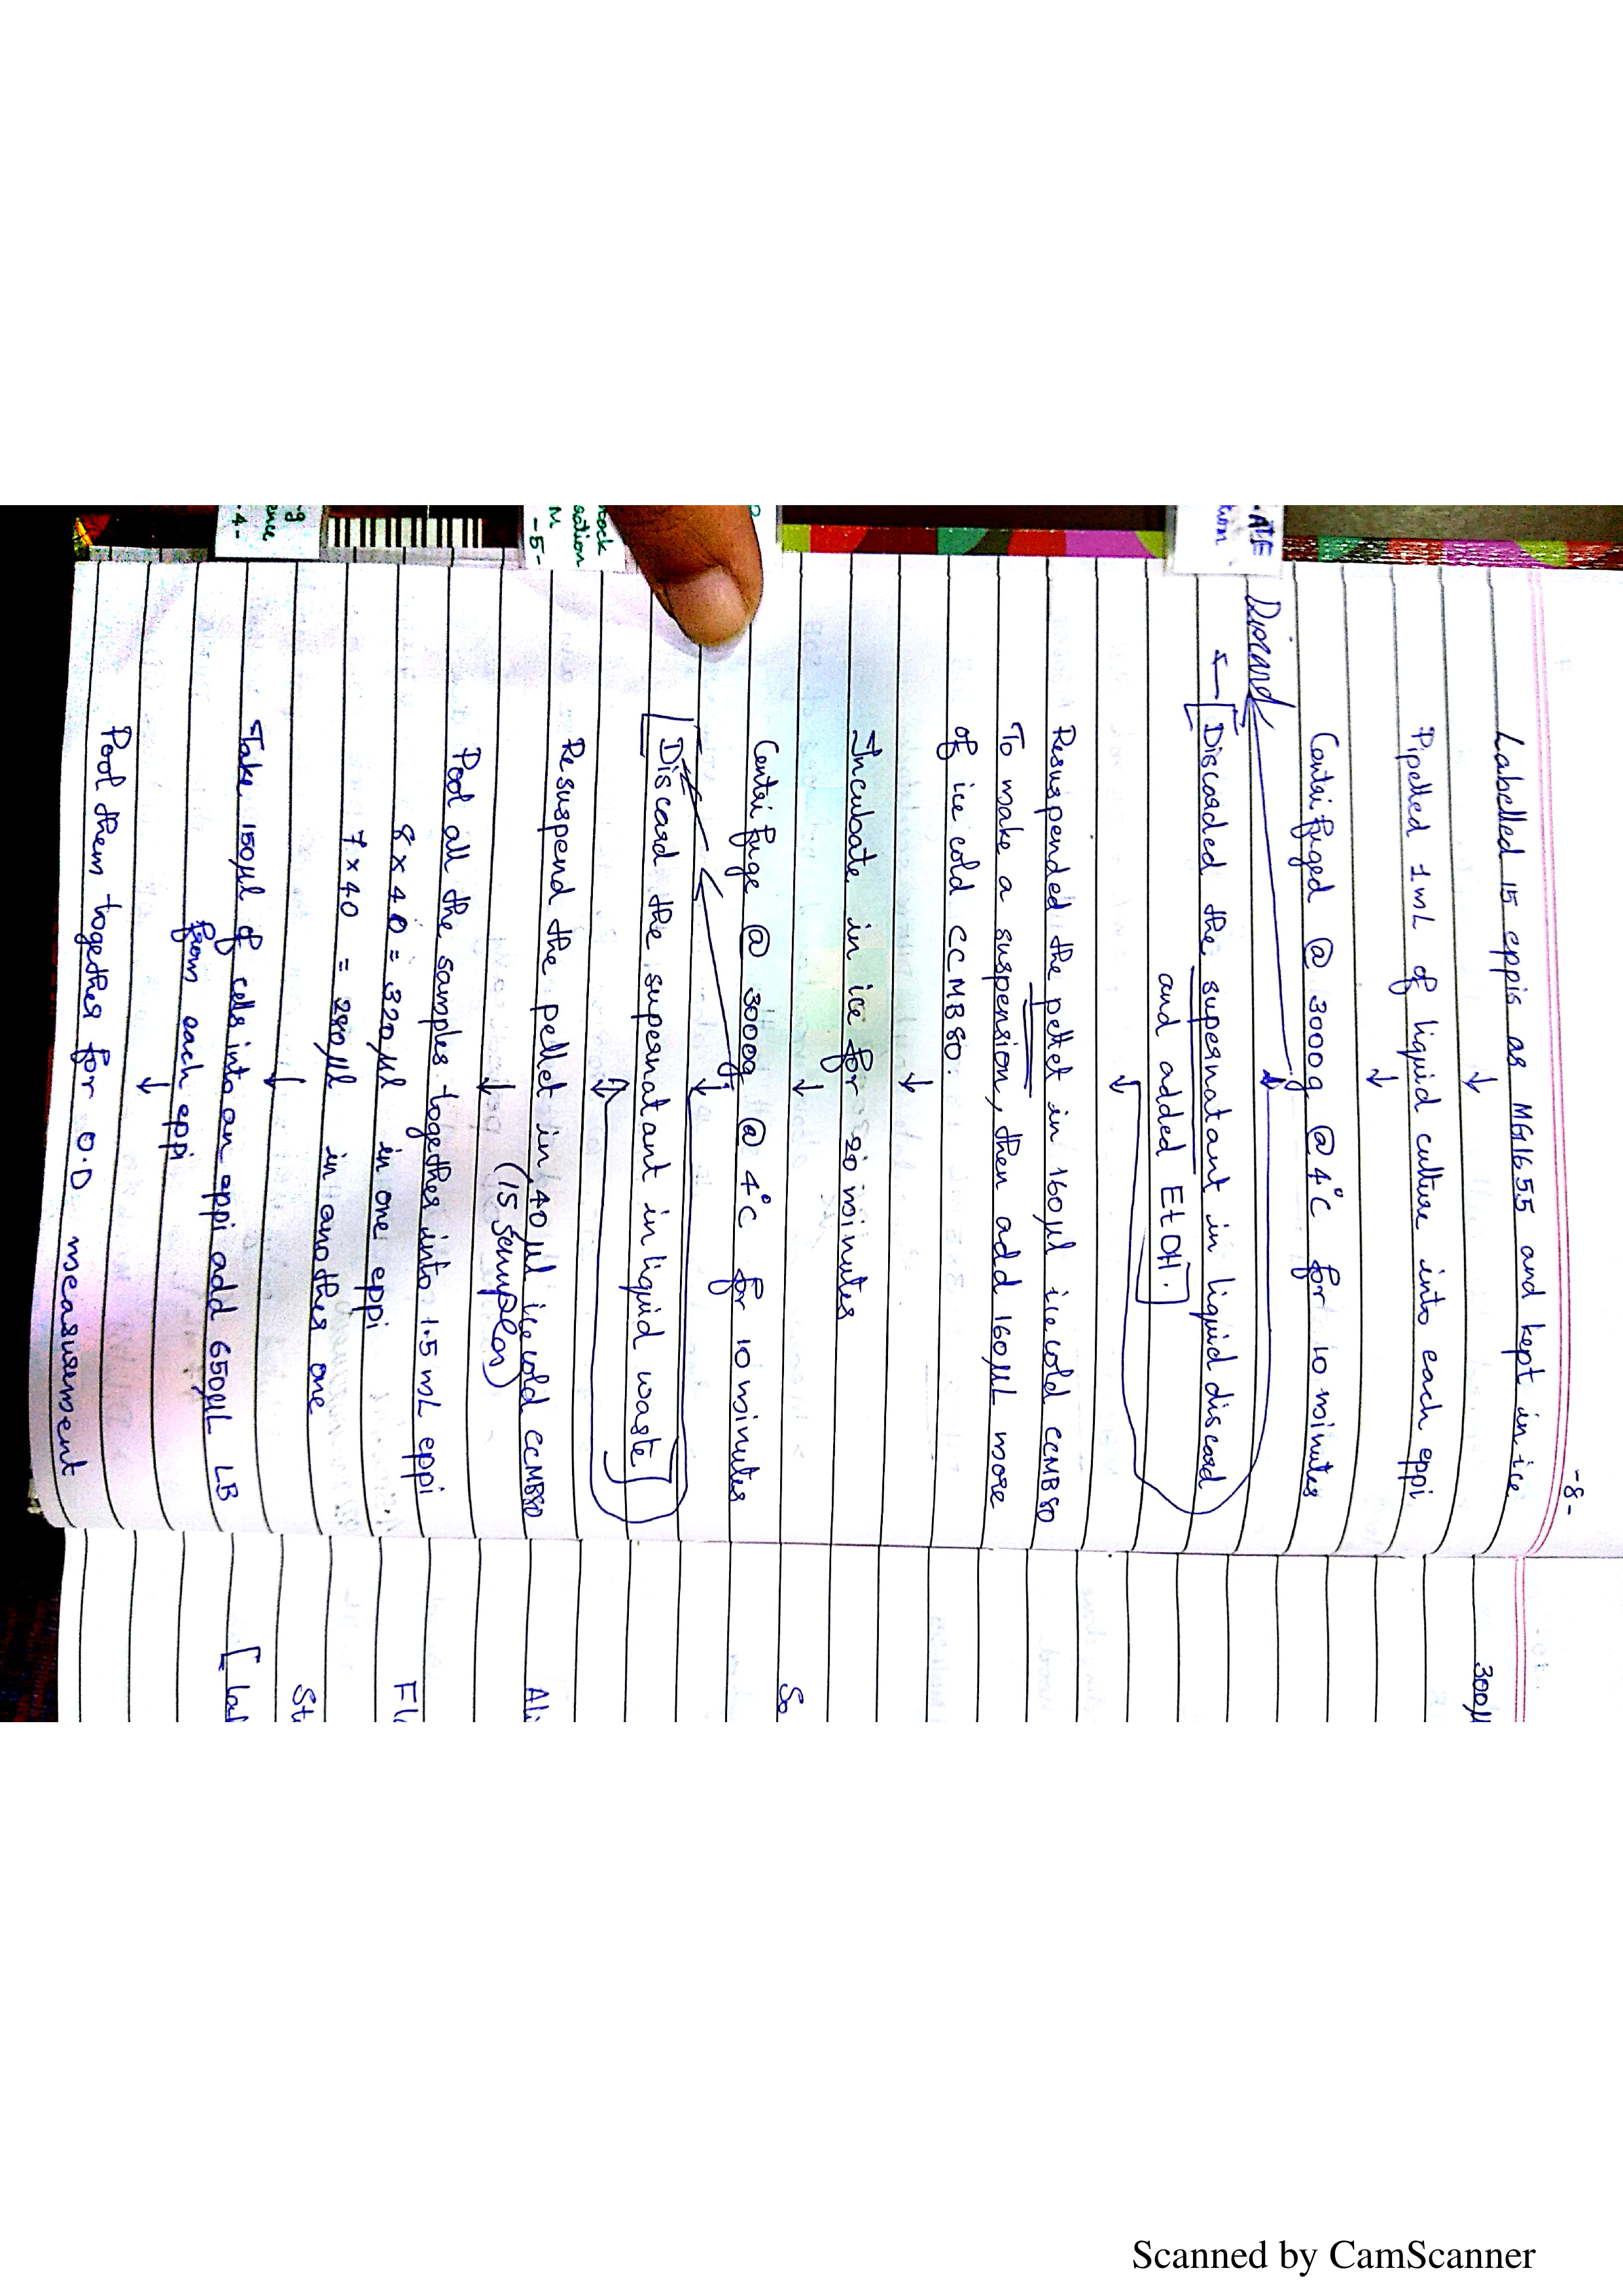 -8-
Labelled 15 eppis as MG1655 and kept in ice
↓
Pipelled 1mL of liquid culture into each eppi
↓
Centrifuged @ 3000g @ 4°C for 10 minutes
↓
Discard
Discarded the supernatant in liquid discard
and added EtOH.
↓
Resuspended the pellet in 160µl ice cold CCMB80
To make a suspension, then add 160µL more
of ice cold CCMB80.
↓
Incubate in ice for 20 minutes
↓
Centrifuge @ 3000g @ 4°C for 10 minutes
↓
Discard the supernatant in liquid waste
Resuspend the pellet in 40µl ice cold CCMB80
↓ (15 samples)
Pool all the samples together into 1.5mL eppi
8 × 40 = 320µl in one eppi
7 × 40 = 280µl in another one
↓
Take 150µl of cells into an eppi add 650µL LB
from each eppi
↓
Pool them together for O.D measurement
300µ
So
Ali
Fl
St
[ lab
-4-
-5-
Scanned by CamScanner